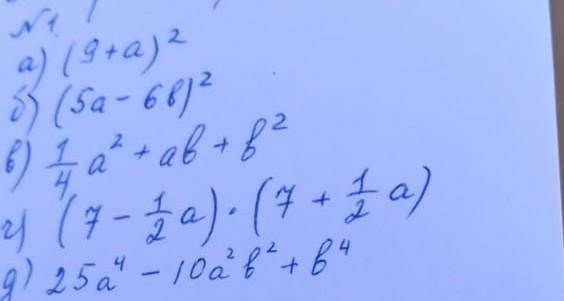 №1
а) (9+a)²
б) (5a - 6b)²
в) 1/4 a² + ab + b²
г) (7 - 1/2 a) · (7 + 1/2 a)
д) 25a⁴ - 10a²b² + b⁴